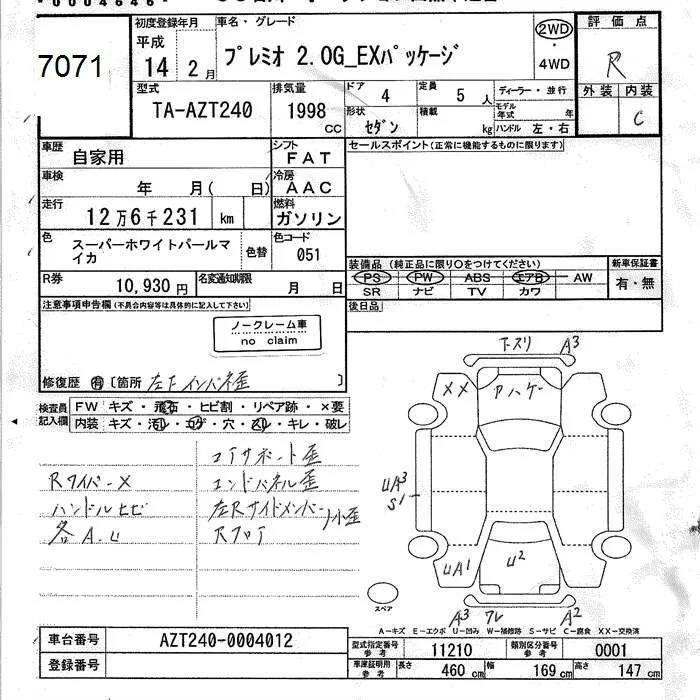 7071
初度登録年月
平成
14 2月
車名・グレード
プレミオ 2.0G_EXパッケージ
2WD
・
4WD
評価点
R
外装 内装
C
型式
TA-AZT240
排気量
1998
CC
ドア 4
定員 5人
形状 セダン
積載 kg
ディーラー・並行
モデル年式 年
ハンドル 左・右
車歴 自家用
シフト FAT
車検 年 月( 日)
冷房 AAC
走行 12万6千231 km
燃料 ガソリン
色 スーパーホワイトパールマイカ
色替
色コード 051
R券 10,930円
名変通知期限 月 日
セールスポイント(正常に機能するものに限ります)
装備品 (純正品に限り〇をつけてください)
PS PW ABS エアB AW
SR ナビ TV カワ
新車保証書
有・無
後日品
注意事項申告欄(不具合内容等は具体的に記入して下さい)
ノークレーム車
no claim
修復歴 有 [箇所 ]
検査員記入欄
FW キズ・飛石・ヒビ割・リペア跡・×要
内装 キズ・汚レ・コゲ・穴・スレ・キレ・破レ
コアサポート歪
Rワイパー×
エンドパネル歪
ハンドルヒビ
左Rサイドメンバー
小歪
各A.U
Rフロア
下スリ A3
XX
UA3
S1
UA1
U2
スペア
A3 ワレ A2
A－キズ E－エクボ U－凹み W－補修跡 S－サビ C－腐食 XX－交換済
車台番号 AZT240-0004012
登録番号
型式指定番号参考 11210
類別区分番号参考 0001
車庫証明用参考 長さ 460cm 幅 169cm 高さ 147cm